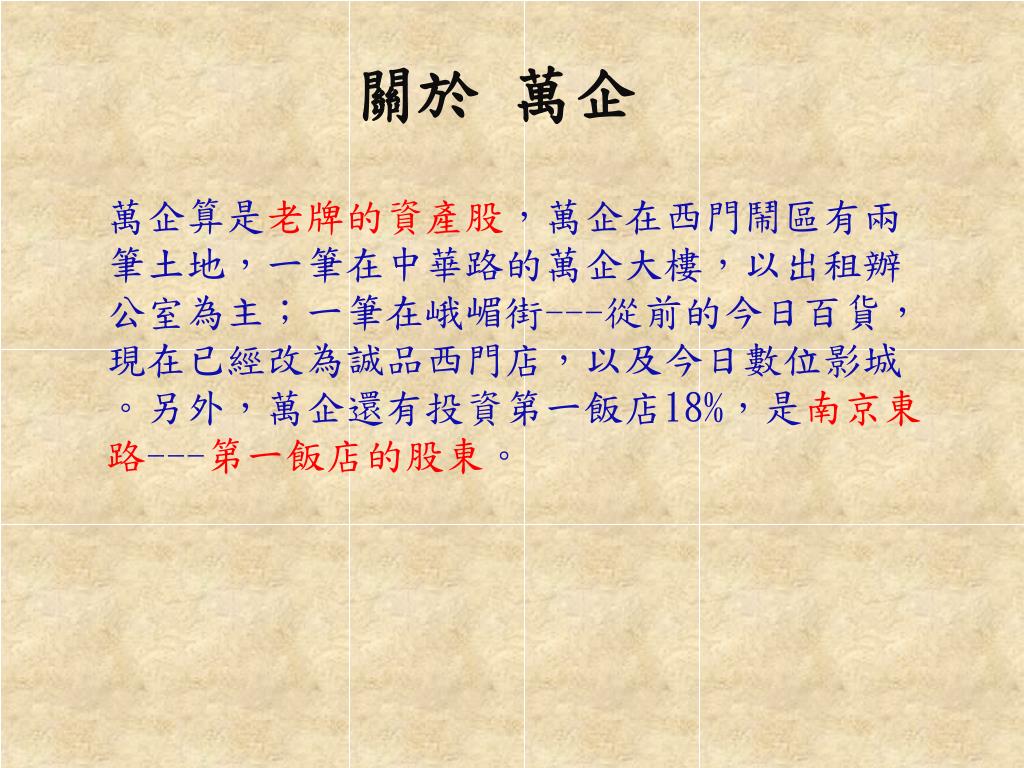 關於 萬企
萬企算是老牌的資產股，萬企在西門鬧區有兩
筆土地，一筆在中華路的萬企大樓，以出租辦
公室為主；一筆在峨嵋街---從前的今日百貨，
現在已經改為誠品西門店，以及今日數位影城
。另外，萬企還有投資第一飯店18%，是南京東
路---第一飯店的股東。